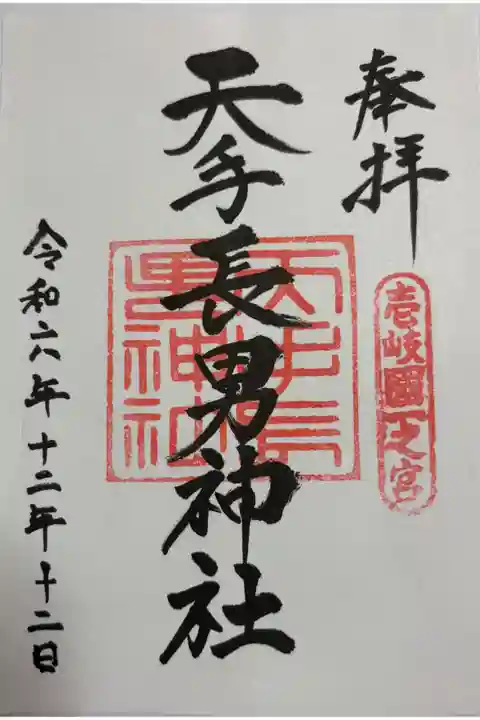 奉拝
壱岐國一之宮
天手長男神社
天手長男神社
令和六年十二年十二日